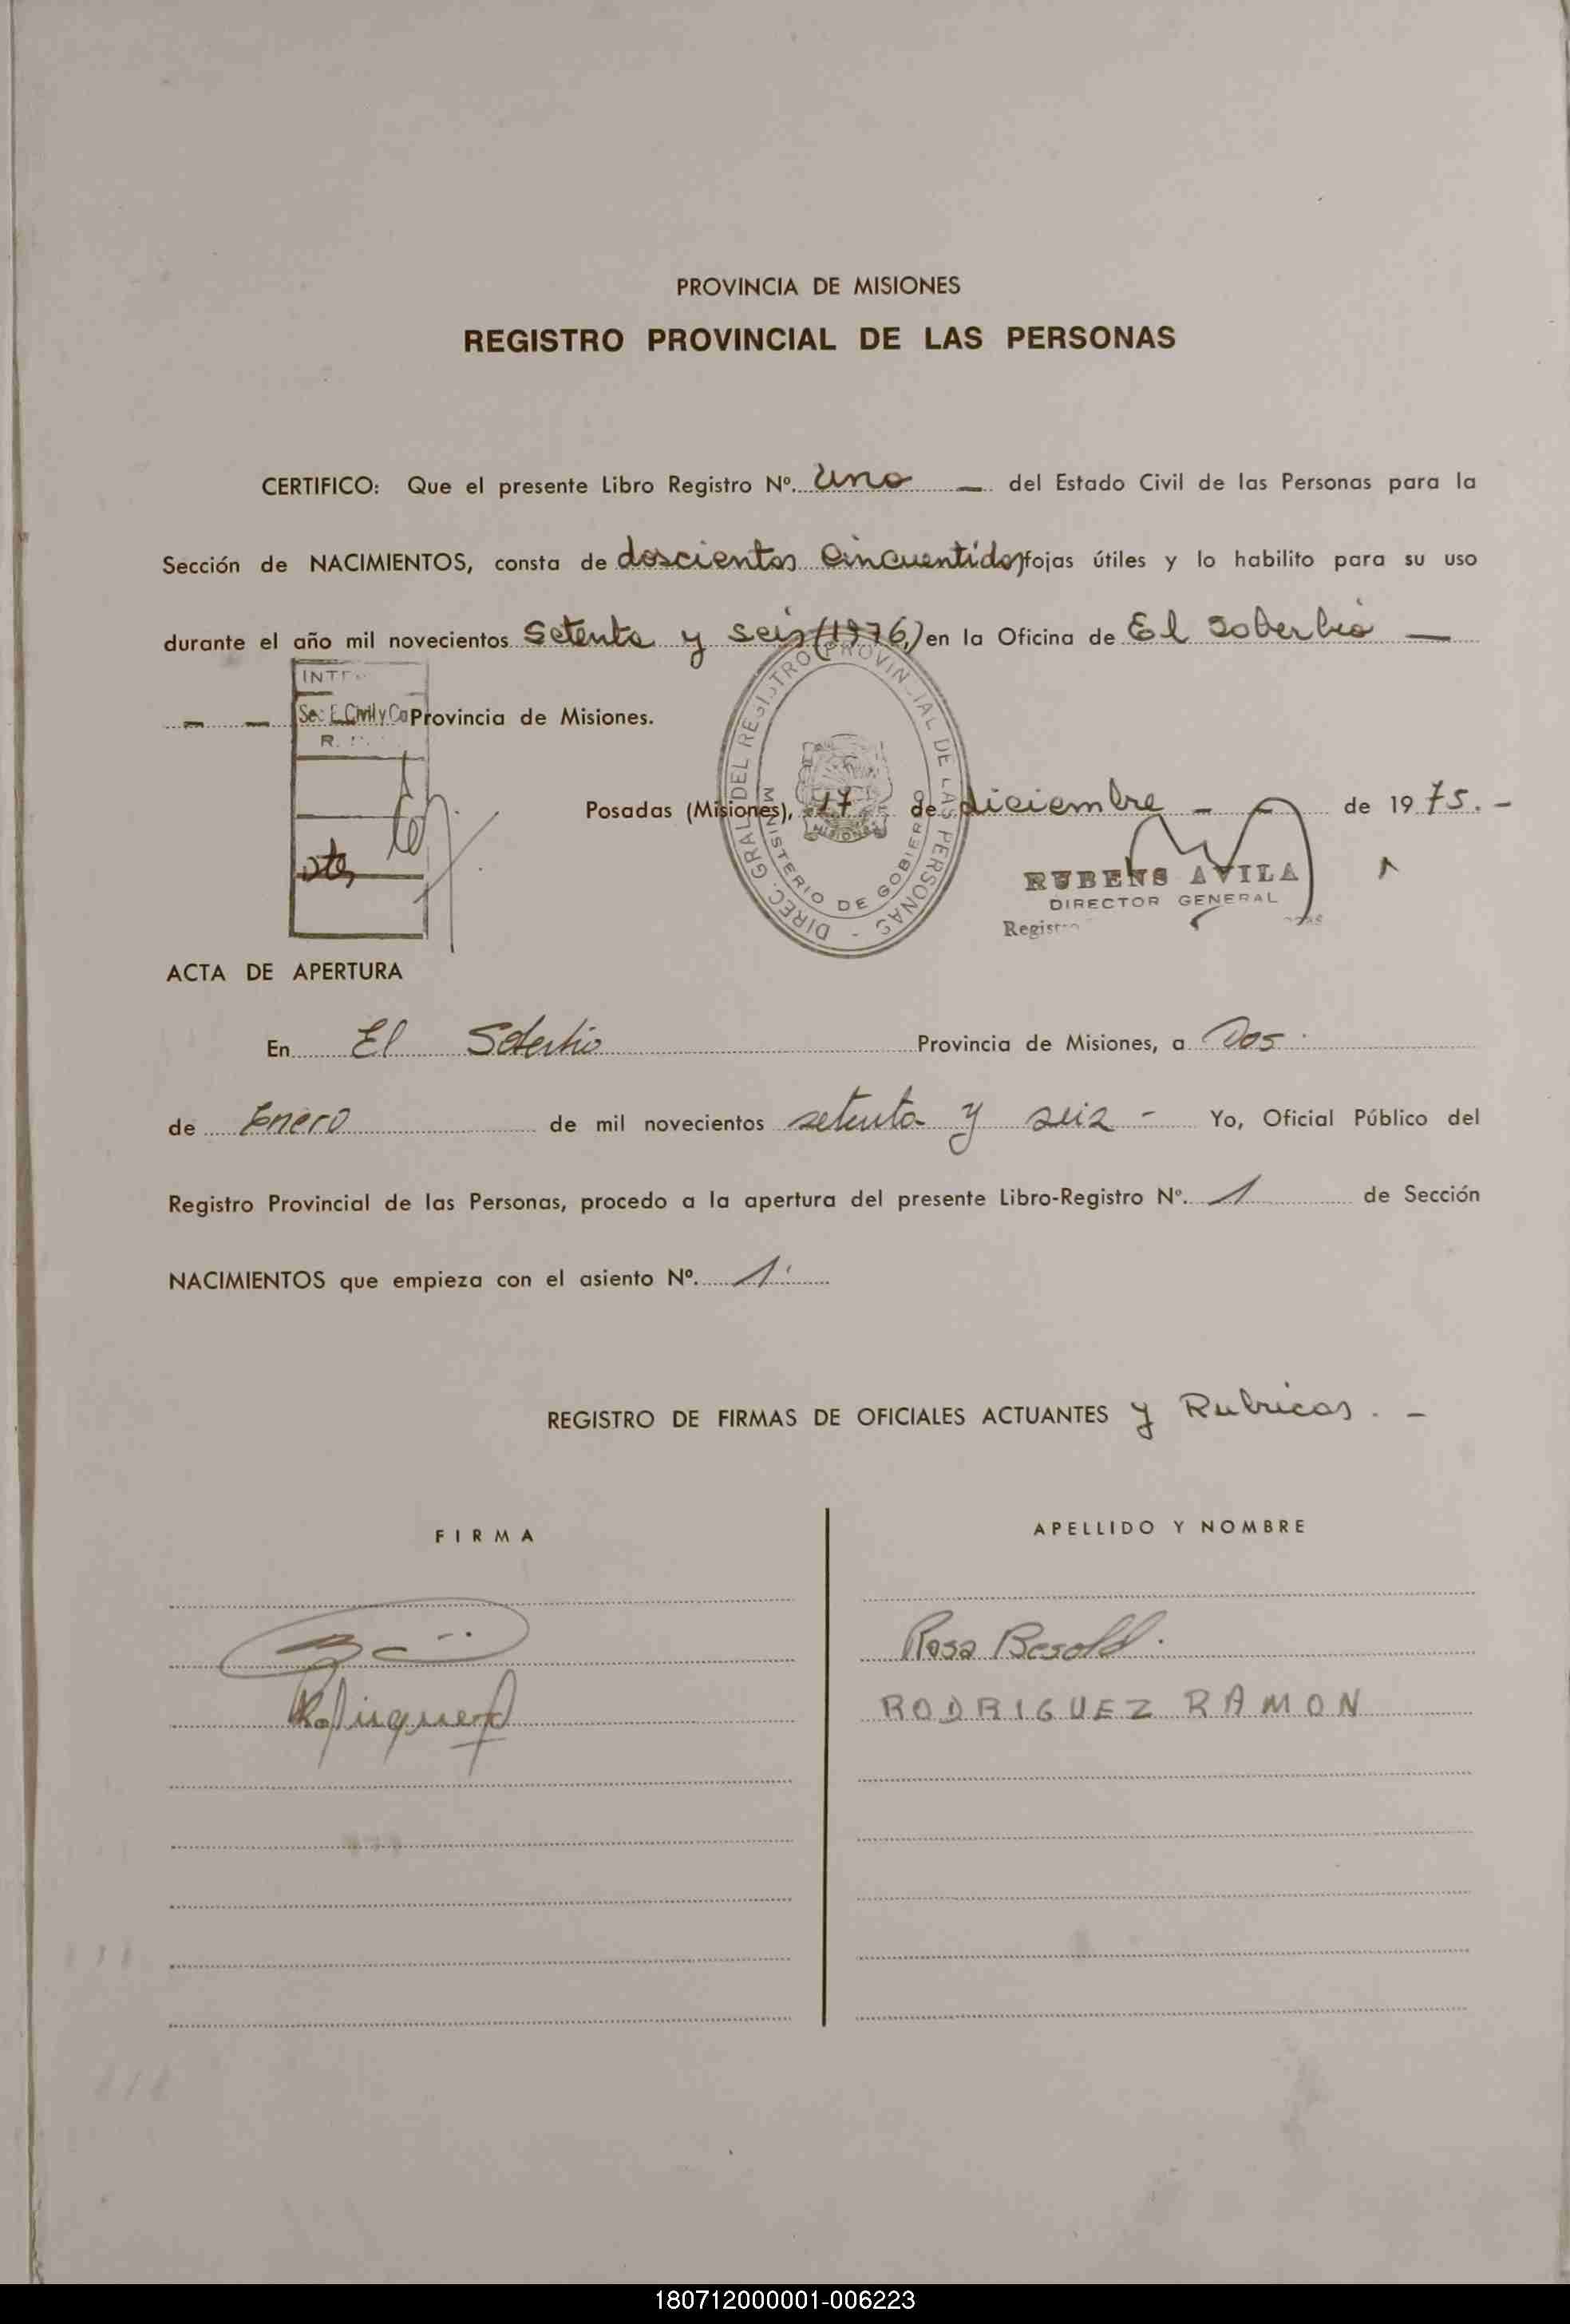 PROVINCIA DE MISIONES
REGISTRO PROVINCIAL DE LAS PERSONAS
CERTIFICO: Que el presente Libro Registro Nº. Uno — del Estado Civil de las Personas para la
Sección de NACIMIENTOS, consta de doscientos cincuentidos fojas útiles y lo habilito para su uso
durante el año mil novecientos Setenta y seis (1976) en la Oficina de El Soberbio —
— — Provincia de Misiones.
Sec E. Civil y Ca
DIREC. GRAL. DEL REGISTRO PROVINCIAL DE LAS PERSONAS -
MINISTERIO DE GOBIERNO
MISIONES
Posadas (Misiones), 17 de diciembre — de 1975. -
RUBENS AVILA
DIRECTOR GENERAL
ACTA DE APERTURA
En El Soberbio Provincia de Misiones, a Dos
de Enero de mil novecientos setenta y seis - Yo, Oficial Público del
Registro Provincial de las Personas, procedo a la apertura del presente Libro-Registro Nº. 1 de Sección
NACIMIENTOS que empieza con el asiento Nº. 1
REGISTRO DE FIRMAS DE OFICIALES ACTUANTES y Rubricas . -
FIRMA APELLIDO Y NOMBRE
Rosa Besold.
RODRIGUEZ RAMON
180712000001-006223